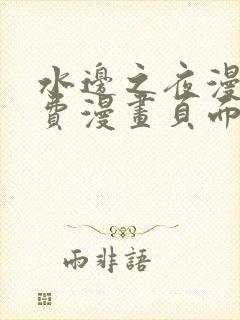 水邊之夜漫
費漫畫頁面
雨非語